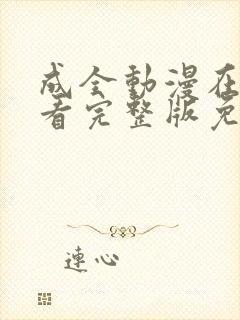 成全動漫在
看完整版免
連心